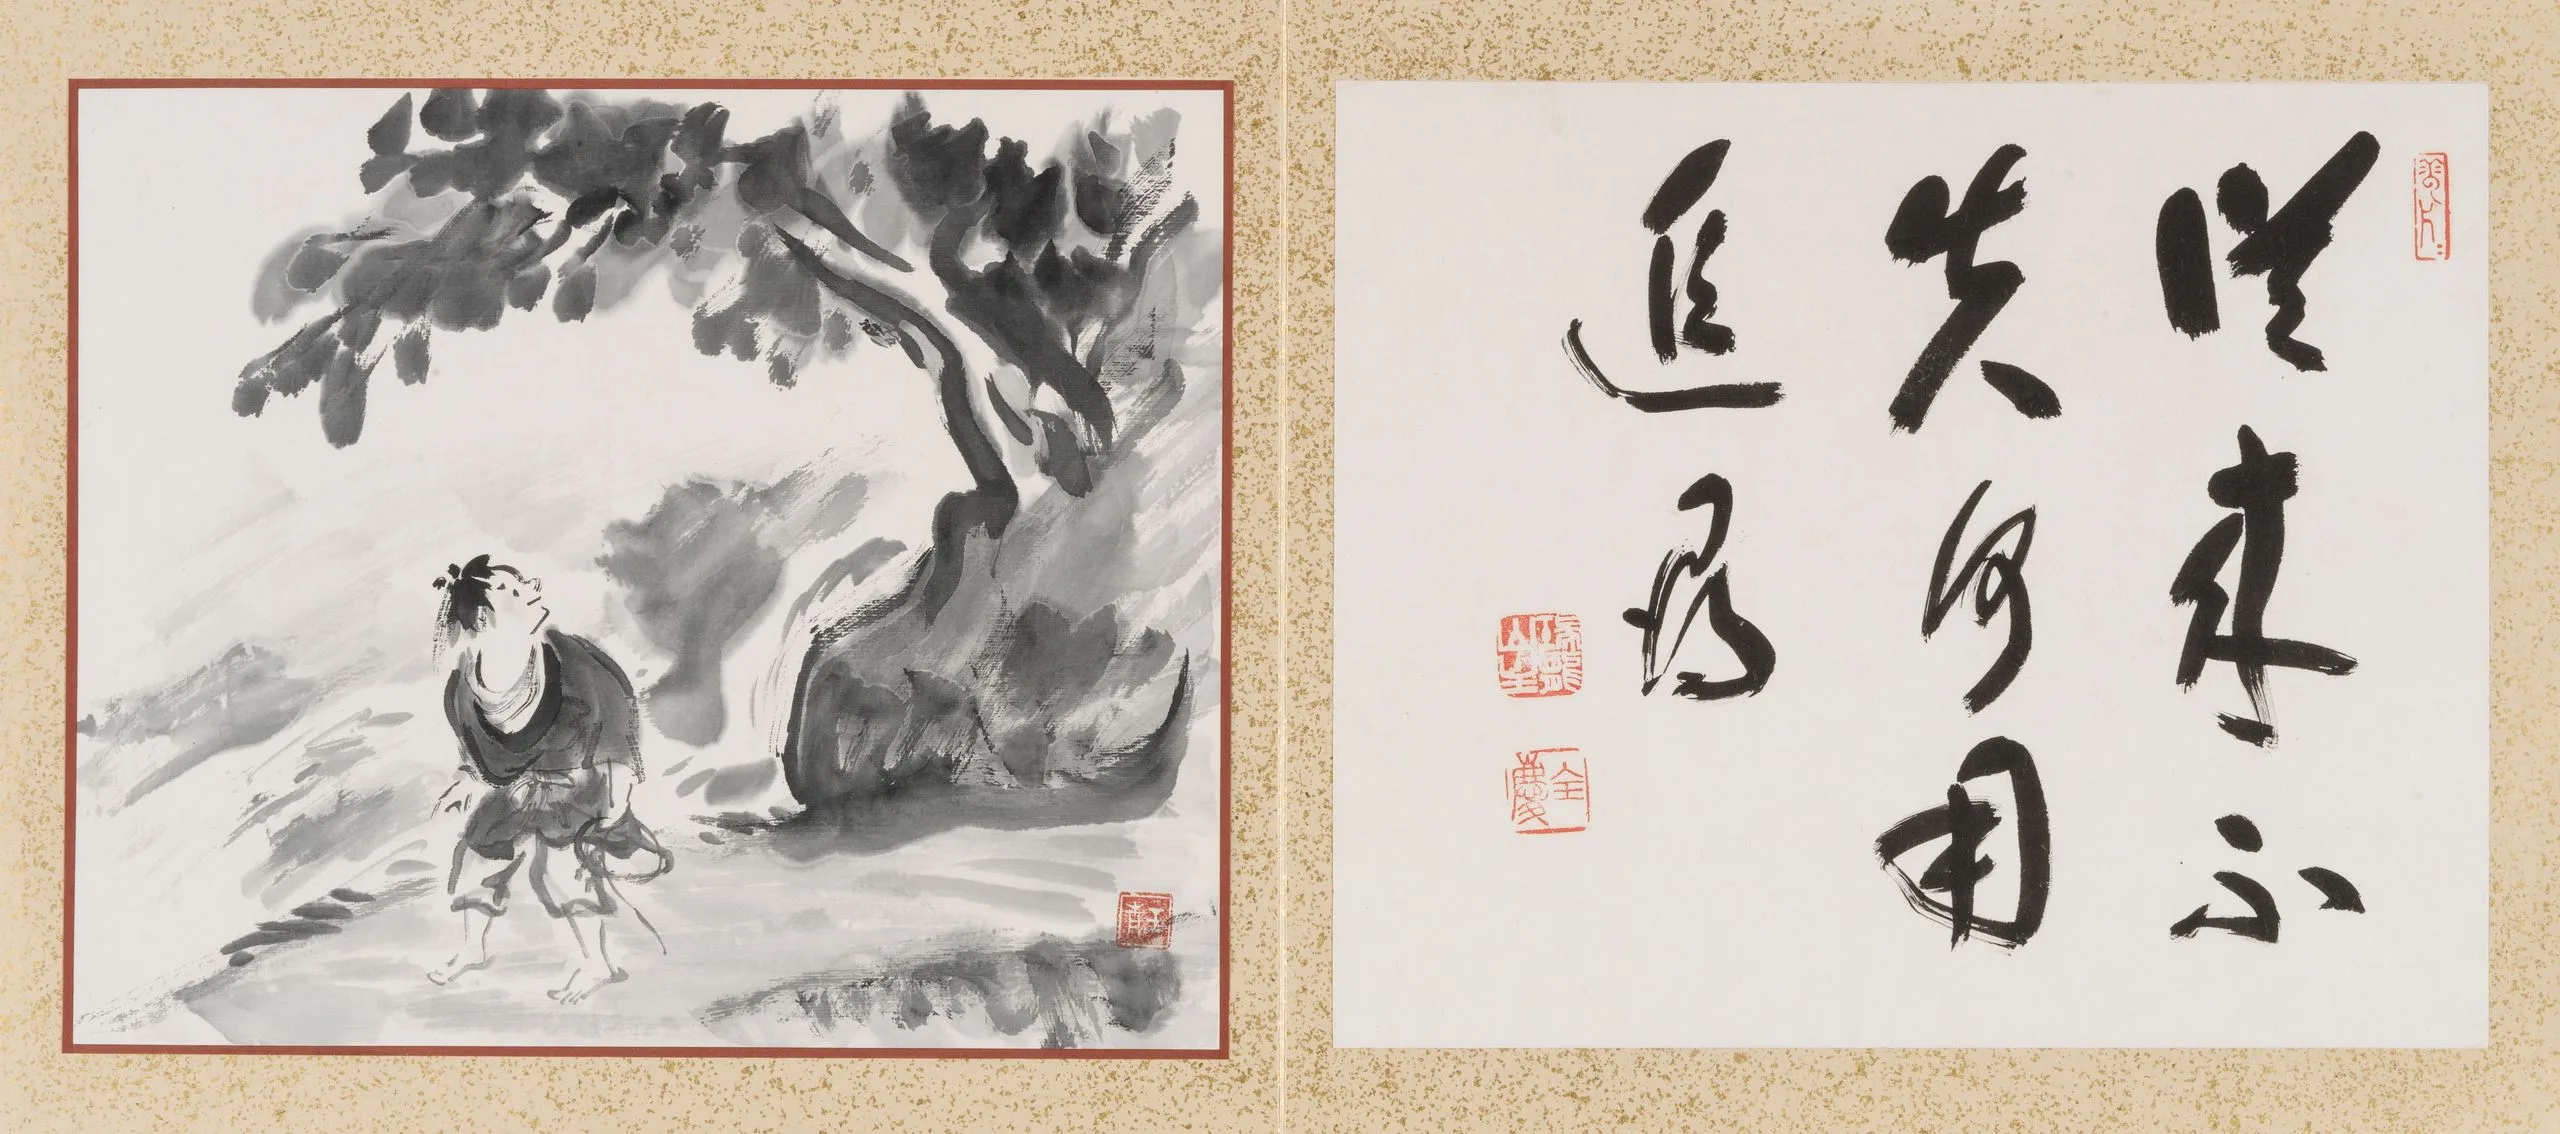 從来不
失何用
追尋
全慶